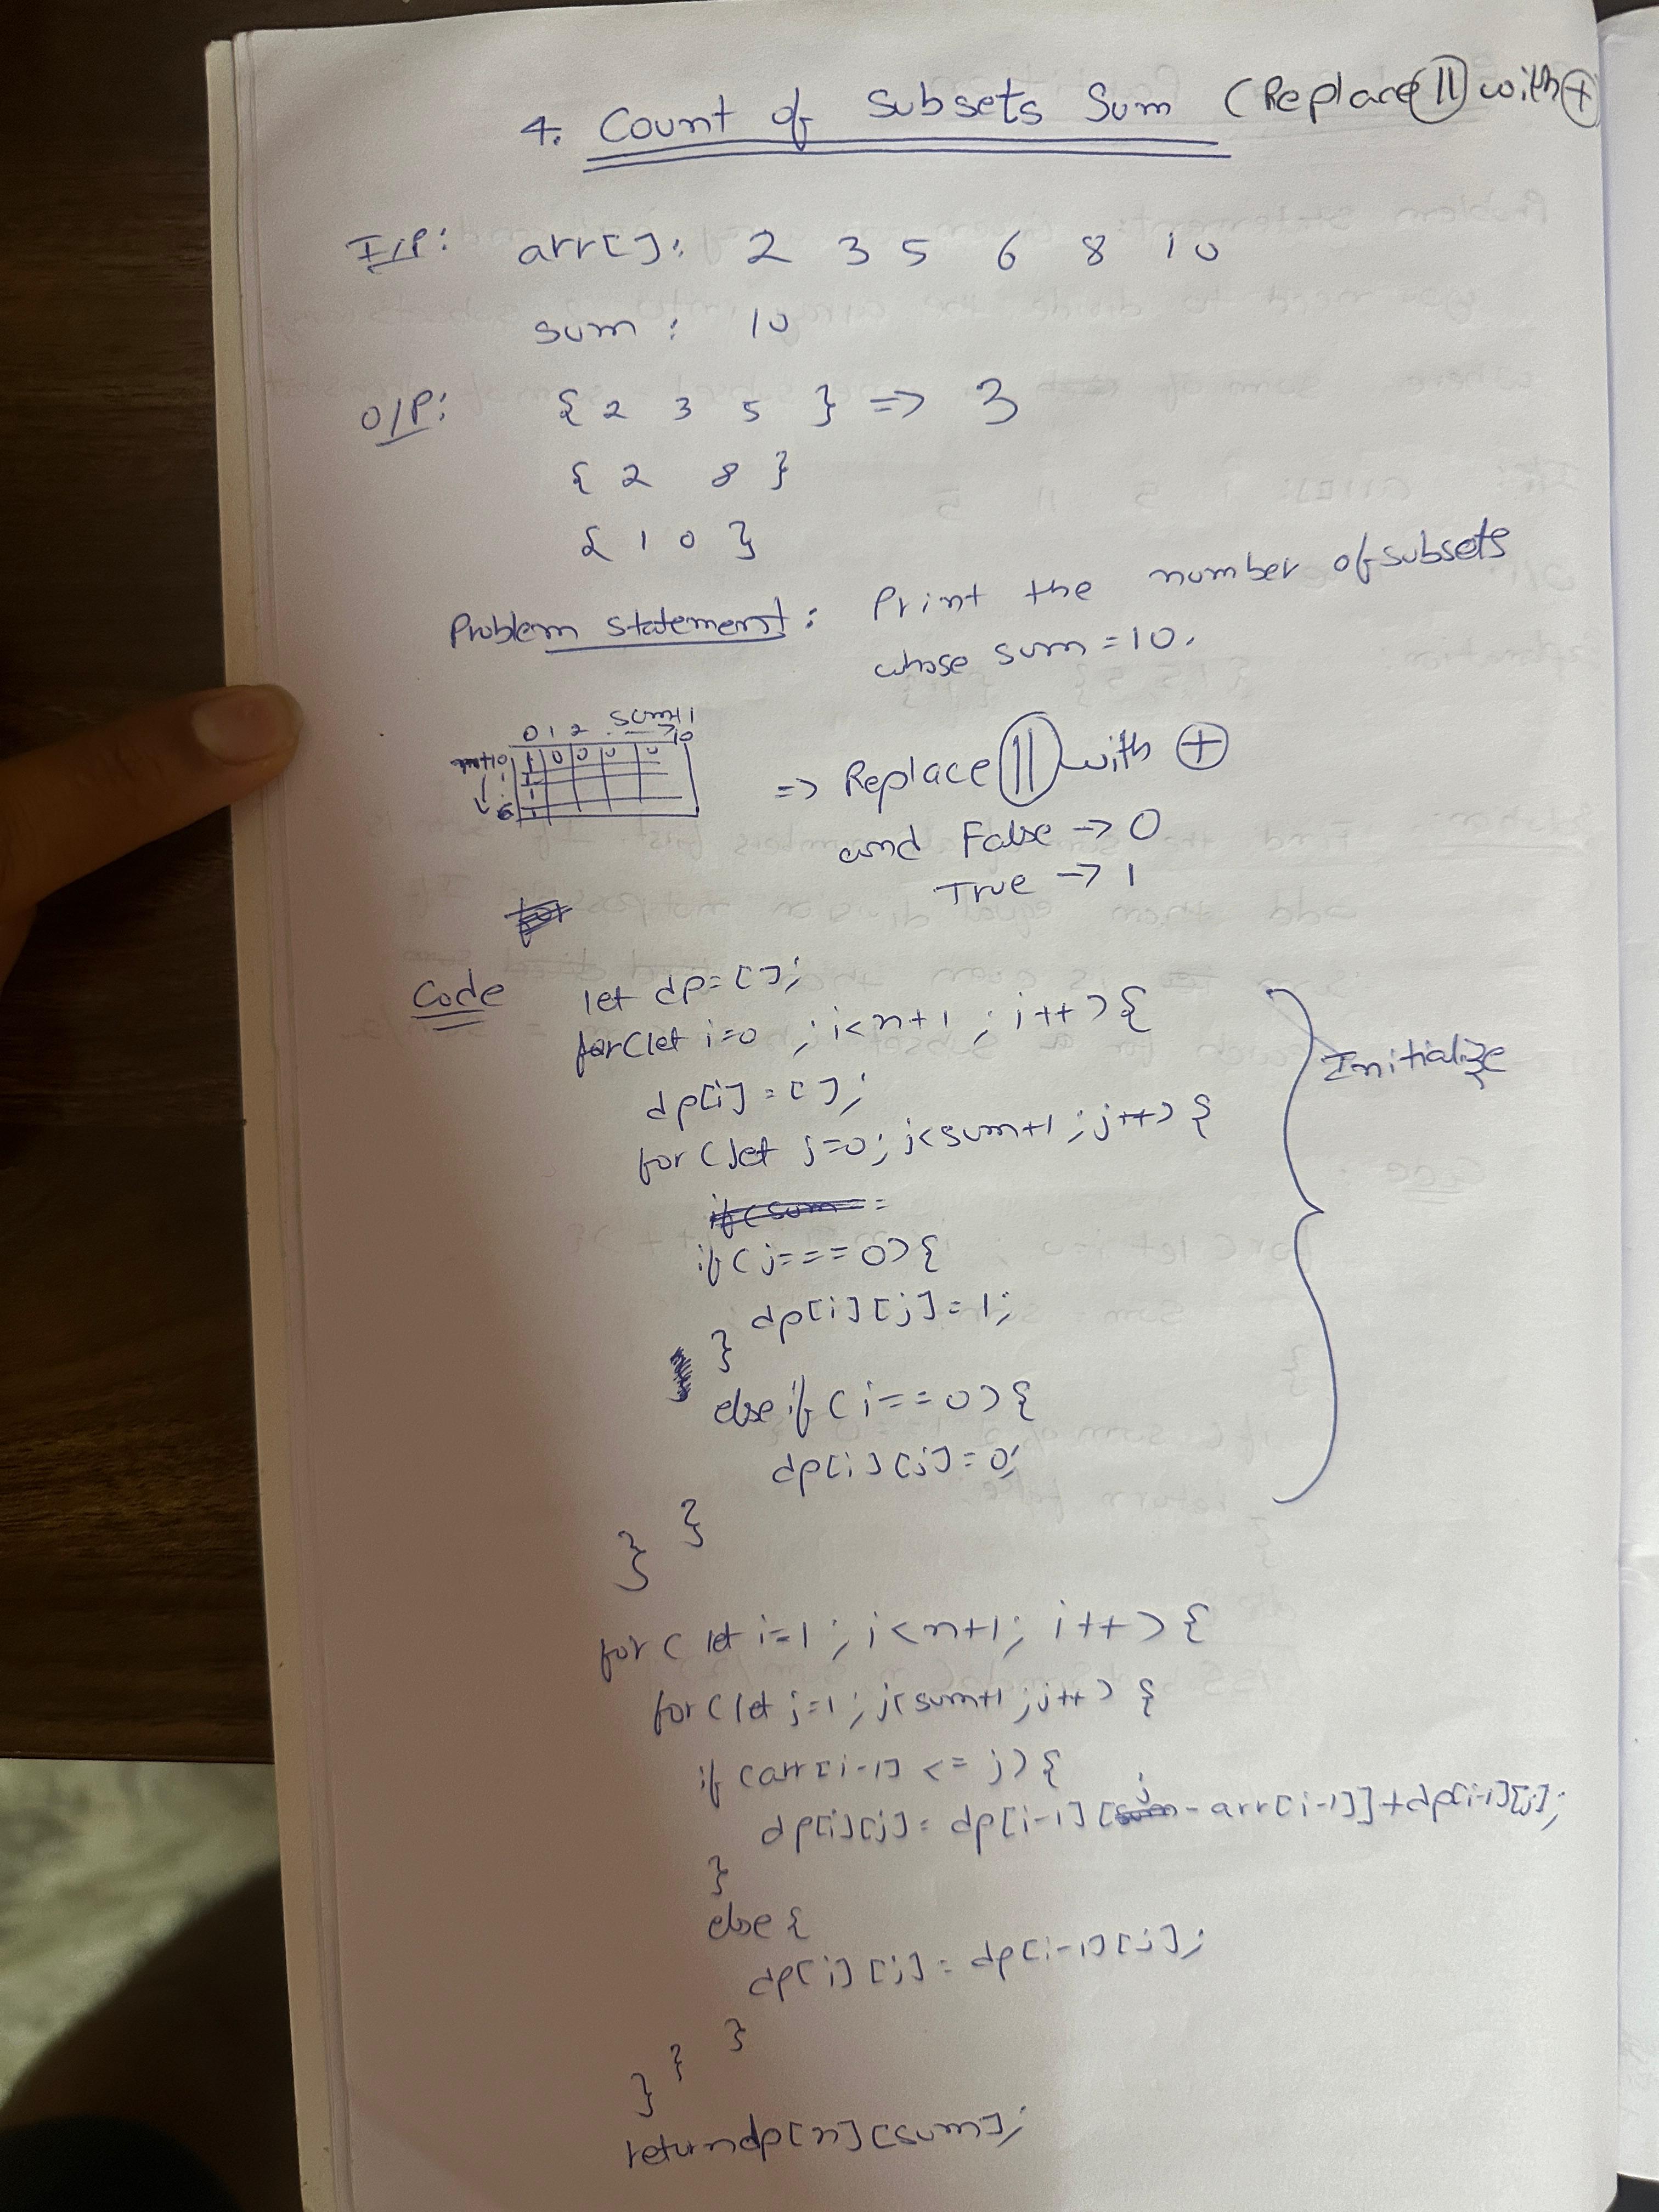 4. Count of Subsets Sum (Replace || with +)
I/P: arr[]: 2 3 5 6 8 10
sum : 10
O/P: { 2 3 5 } => 3
{ 2 8 }
{ 10 }
Problem statement : Print the number of subsets
whose sum = 10.
sum+1
0 1 2 10
n+1 0 1 0 0 0 0
1 1
1
6 1
=> Replace || with +
and False -> 0
True -> 1
for
Code let dp = [];
for(let i=0 ; i<n+1 ; i++){
dp[i] = [];
for(let j=0; j<sum+1 ; j++) {
Initialize
if(sum =
if(j===0){
dp[i][j] = 1;
}
else if (i==0){
dp[i][j] = 0;
}
}
for( let i=1 ; i<n+1; i++){
for(let j=1 ; j<sum+1 ; j++) {
if (arr[i-1] <= j) {
dp[i][j] = dp[i-1][sum j - arr[i-1]] + dp[i-1][j];
}
else {
dp[i][j] = dp[i-1][j];
}
}
}
return dp[n][sum];